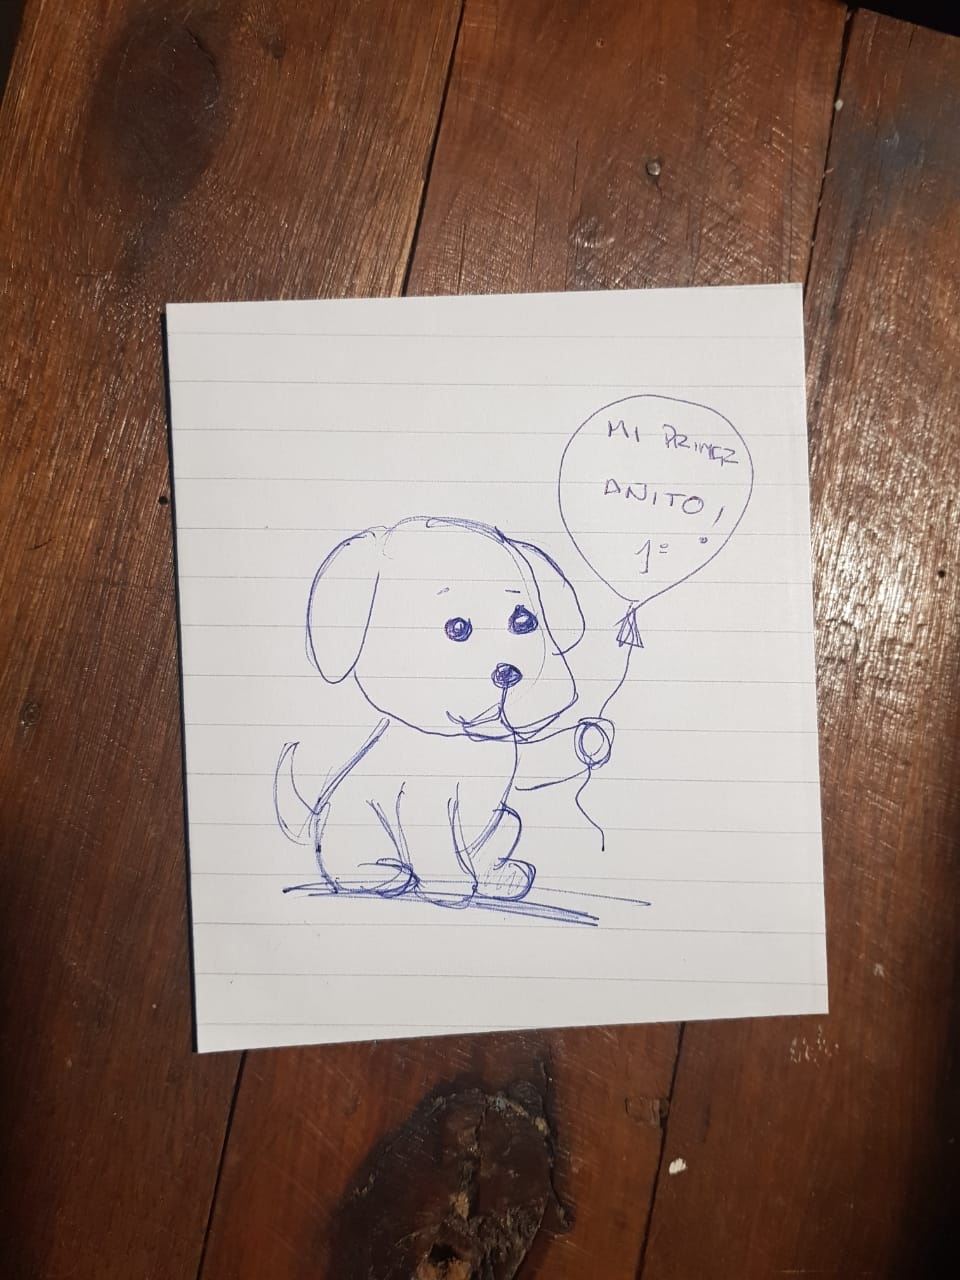 MI PRIMER
AÑITO!
1º